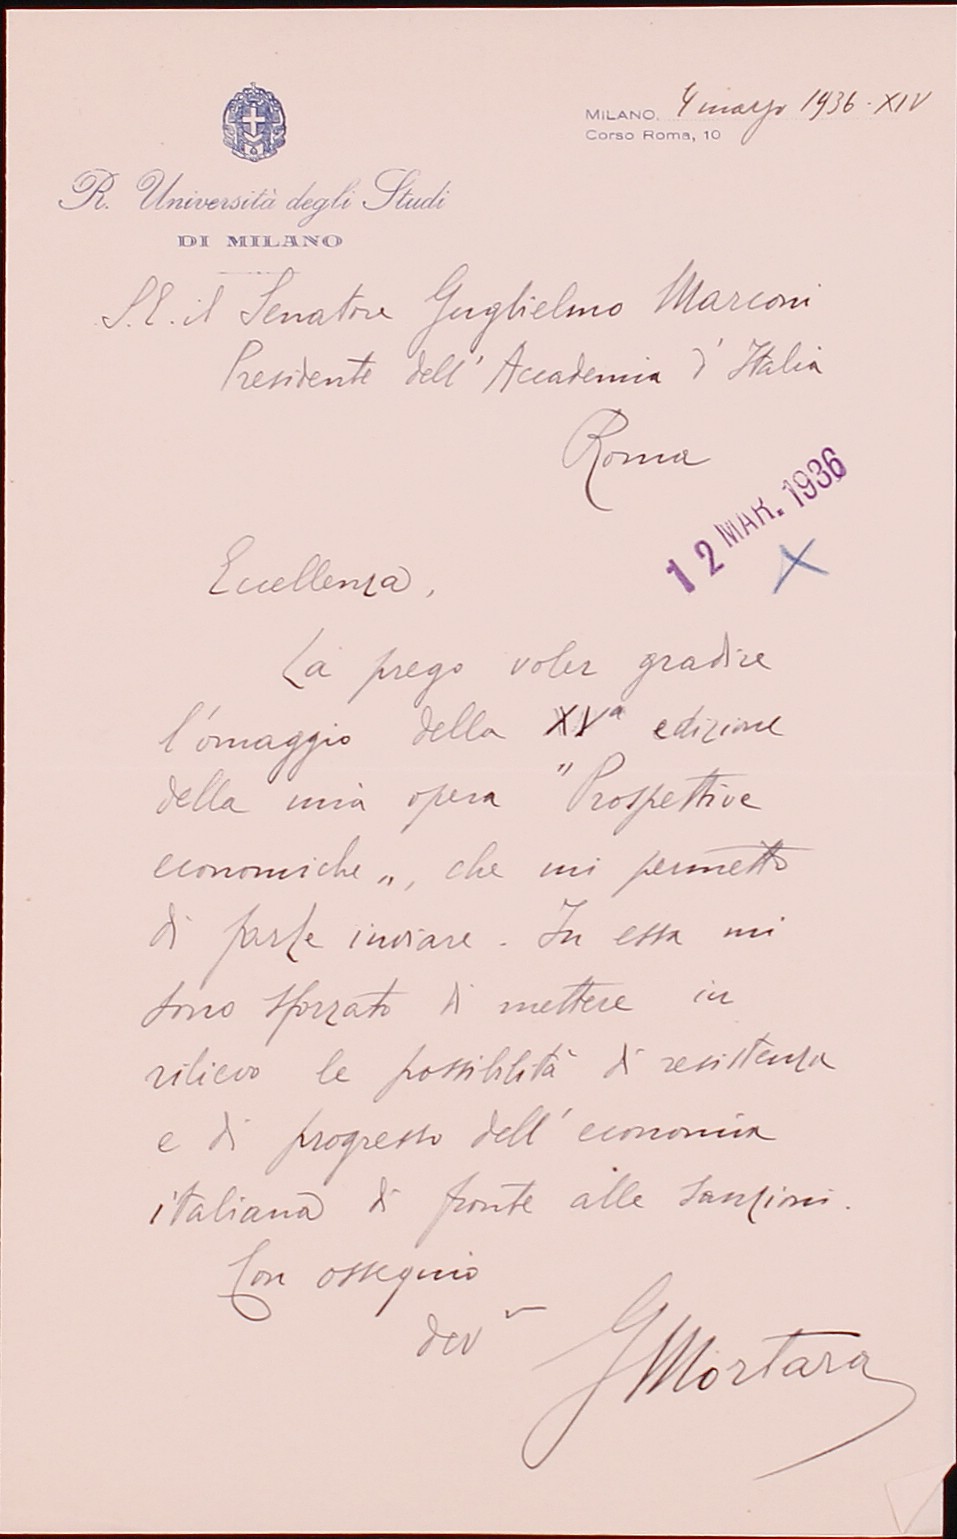 MILANO, 4 marzo 1936 · XIV
Corso Roma, 10
R. Università degli Studi
DI MILANO
S. E. il Senatore Guglielmo Marconi
Presidente dell' Accademia d' Italia
Roma
12 MAR. 1936
Eccellenza,
La prego voler gradire
l'omaggio della XVª edizione
della mia opera "Prospettive
economiche„, che mi permetto
di farLe inviare. In essa mi
sono sforzato di mettere in
rilievo le possibilità di resistenza
e di progresso dell' economia
italiana di fronte alle sanzioni.
Con ossequio
dev
GMortara